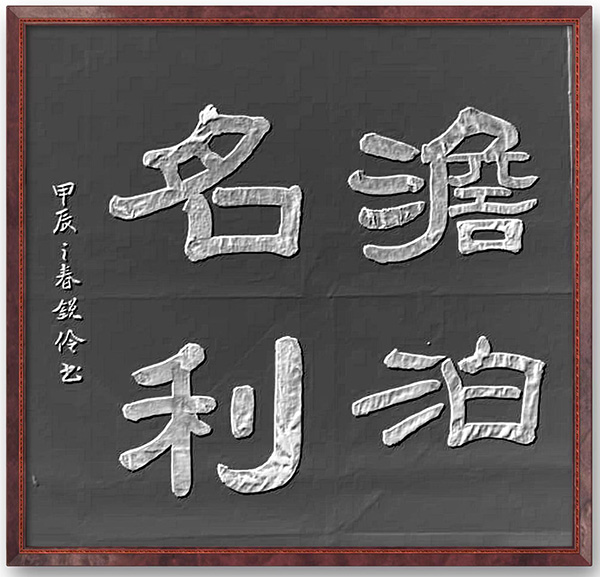 澹泊
名利
甲辰之春鋭伶书